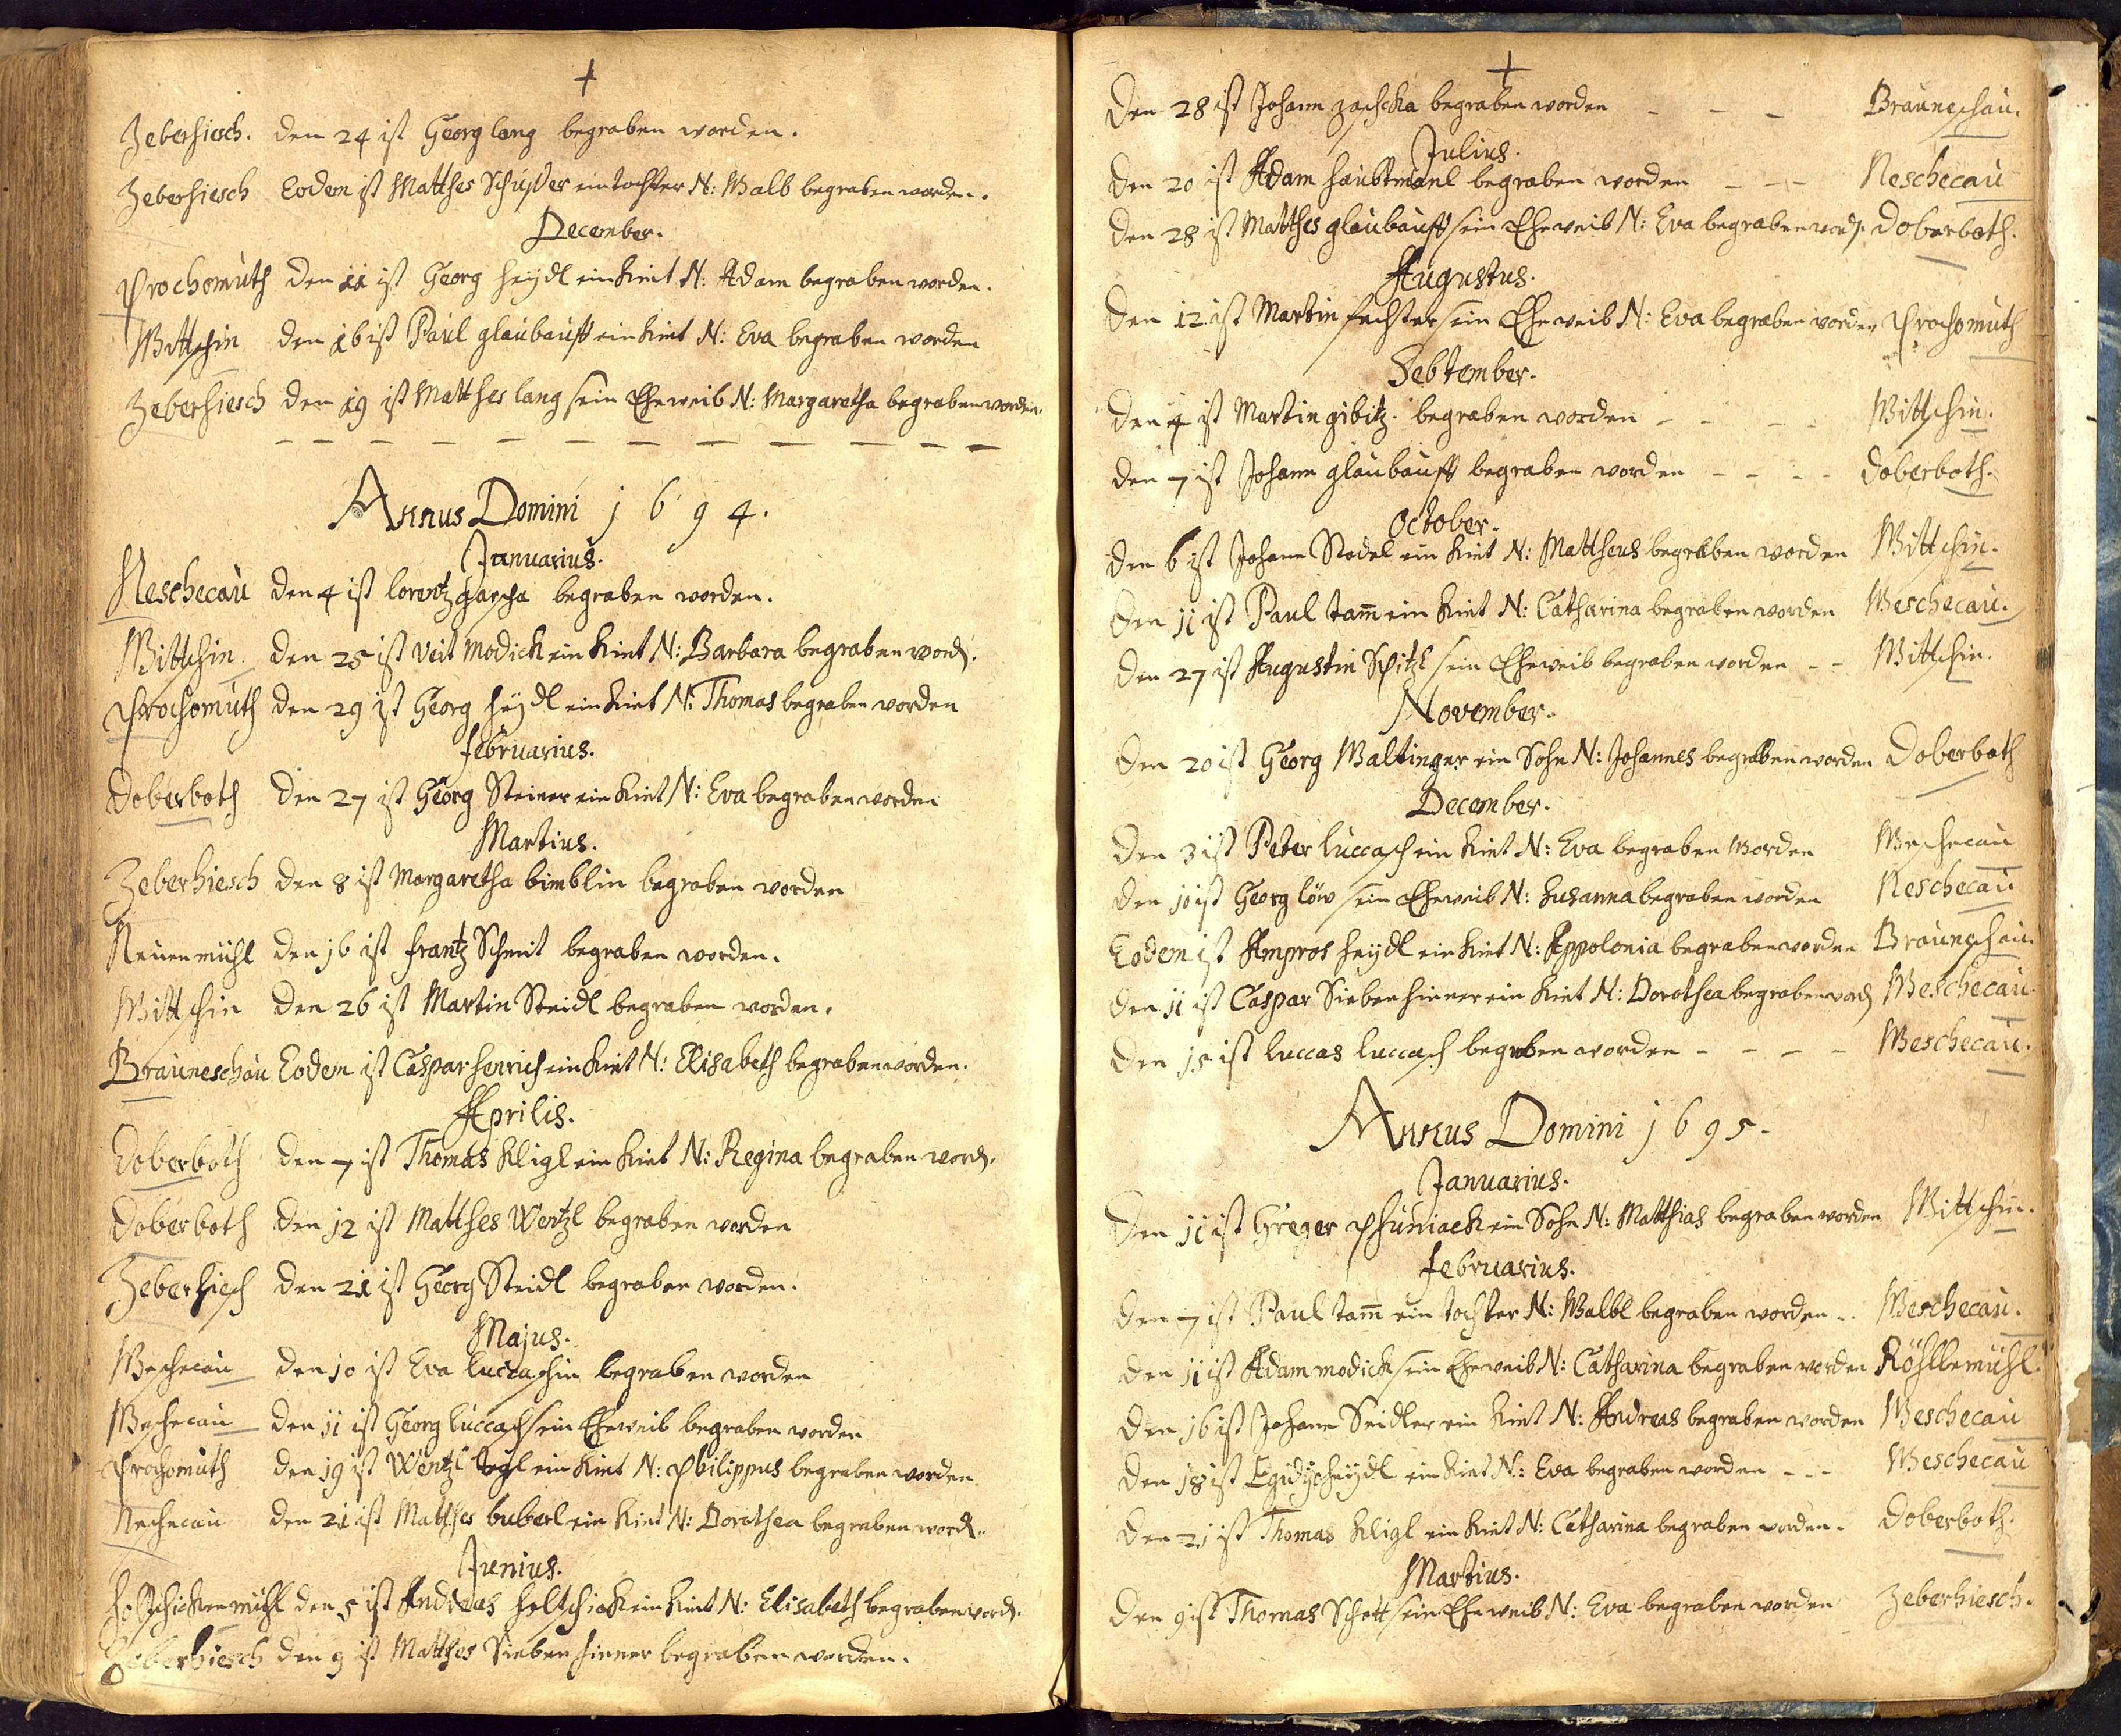 +
Zeberhiesch. den 24 ist Georg lang begraben worden.
Zeberhiesch Eodem ist Matthes Schuster ein tochter N: Walb begraben worden.
December.
Prochomuth den 11 ist Georg heÿdl ein Kint N: Adam begraben worden.
Wittschin den 16 ist Paul glaubauff ein Kint N: Eva begraben worden
Zeberhiesch den 19 ist Matthes lang sein Eheweib N: Margaretha begraben worden.
Annus Domini 1694.
Januarius.
Neschecau den 4 ist lorentz gascha begraben worden.
Wittschin. den 25 ist Veit Modick ein Kint N: Barbara begraben word.
Prochomuth den 29 ist Georg heÿdl ein Kint N: Thomas begraben worden
februarius.
Doberboth den 27 ist Georg Steiner ein Kint N: Eva begraben worden
Martius.
Zeberhiesch den 8 ist Margaretha bimblin begraben worden
Neuenmühl den 16 ist frantz Schmit begraben worden.
Wittschin den 26 ist Martin Steidl begraben worden.
Brauneschau Eodem ist Caspar henrich ein Kint N: Elisabeth begraben worden.
Aprilis.
Doberboth den 7 ist Thomas Kligl ein Kint N: Regina begraben word.
Doberboth den 12 ist Matthes Wentzl begraben worden
Zeberhiesch den 21 ist Georg Steidl begraben worden.
Majus.
Weschecau den 10 ist Eva luccaschin begraben worden
Weschecau den 11 ist Georg luccasch sein Eheweib begraben worden
Prochomuth den 19 ist Wentzl Vogl ein Kint N: Philippus begraben worden
Neschecau den 21 ist Matthes buberl ein Kint N: Dorothea begraben word.
Junius.
holtschickenmühl den 5 ist Andreas holtschick ein Kint N: Elisabeth begraben word.
Zeberhiesch den 9 ist Matthes Siebenhinner begraben worden.
+
Den 28 ist Johann zaschcka begraben worden - - - Brauneschau.
Julius.
Den 20 ist Adam haubtmanl begraben worden - - - Neschecau
Den 28 ist Matthes glaubauff sein Eheweib N: Eva begraben word. Doberboth.
Augustus.
Den 12 ist Martin fechter sein Eheweib N: Eva begraben worden Prochomuth
Sebtember.
Den 4 ist Martin gibitz. begraben worden - - - - Wittschin.
Den 7 ist Johann glaubauff begraben worden - - - - Doberboth.
October.
Den 6 ist Johann Stodel ein Kint N: Mattheus begraben worden Wittschin.
Den 11 ist Paul tam̅ ein Kint N: Catharina begraben worden Weschecau.
Den 27 ist Augustin Spitzl sein Eheweib begraben worden - - Wittschin.
November.
Den 20 ist Georg Waltinger ein Sohn N: Johannes begraben worden Doberboth
December.
Den 3 ist Peter luccasch ein Kint N: Eva begraben worden Weschecau
Den 10 ist Georg löw sein Eheweib N: Susanna begraben worden Neschecau
Eodem ist Ampros heÿdl ein Kint N: Appolonia begraben worden Brauneschau.
Den 11 ist Caspar Siebenhinner ein Kint N: Dorothea begraben word Weschecau.
Den 15 ist luccas luccasch begraben worden - - - - Weschecau.
Annus Domini 1695.
Januarius.
Den 11 ist Greger Phuniack ein Sohn N: Matthias begraben worden Wittschin.
februarius.
Den 7 ist Paul tam̅ ein tochter N: Walbl begraben worden - - Weschecau.
Den 11 ist Adam modick sein Eheweib N: Catharina begraben worden Röhllemühl.
Den 16 ist Johann Seidler ein Kint N: Andreas begraben worden Weschecau
Den 18 ist Egidÿ heÿdl ein Kint N: Eva begraben worden - - - Weschecau
Den 21 ist Thomas Kligl ein Kint N: Catharina begraben worden. Doberboth.
Martius.
Den 9 ist Thomas Schott sein Eheweib N: Eva begraben worden Zeberhiesch.